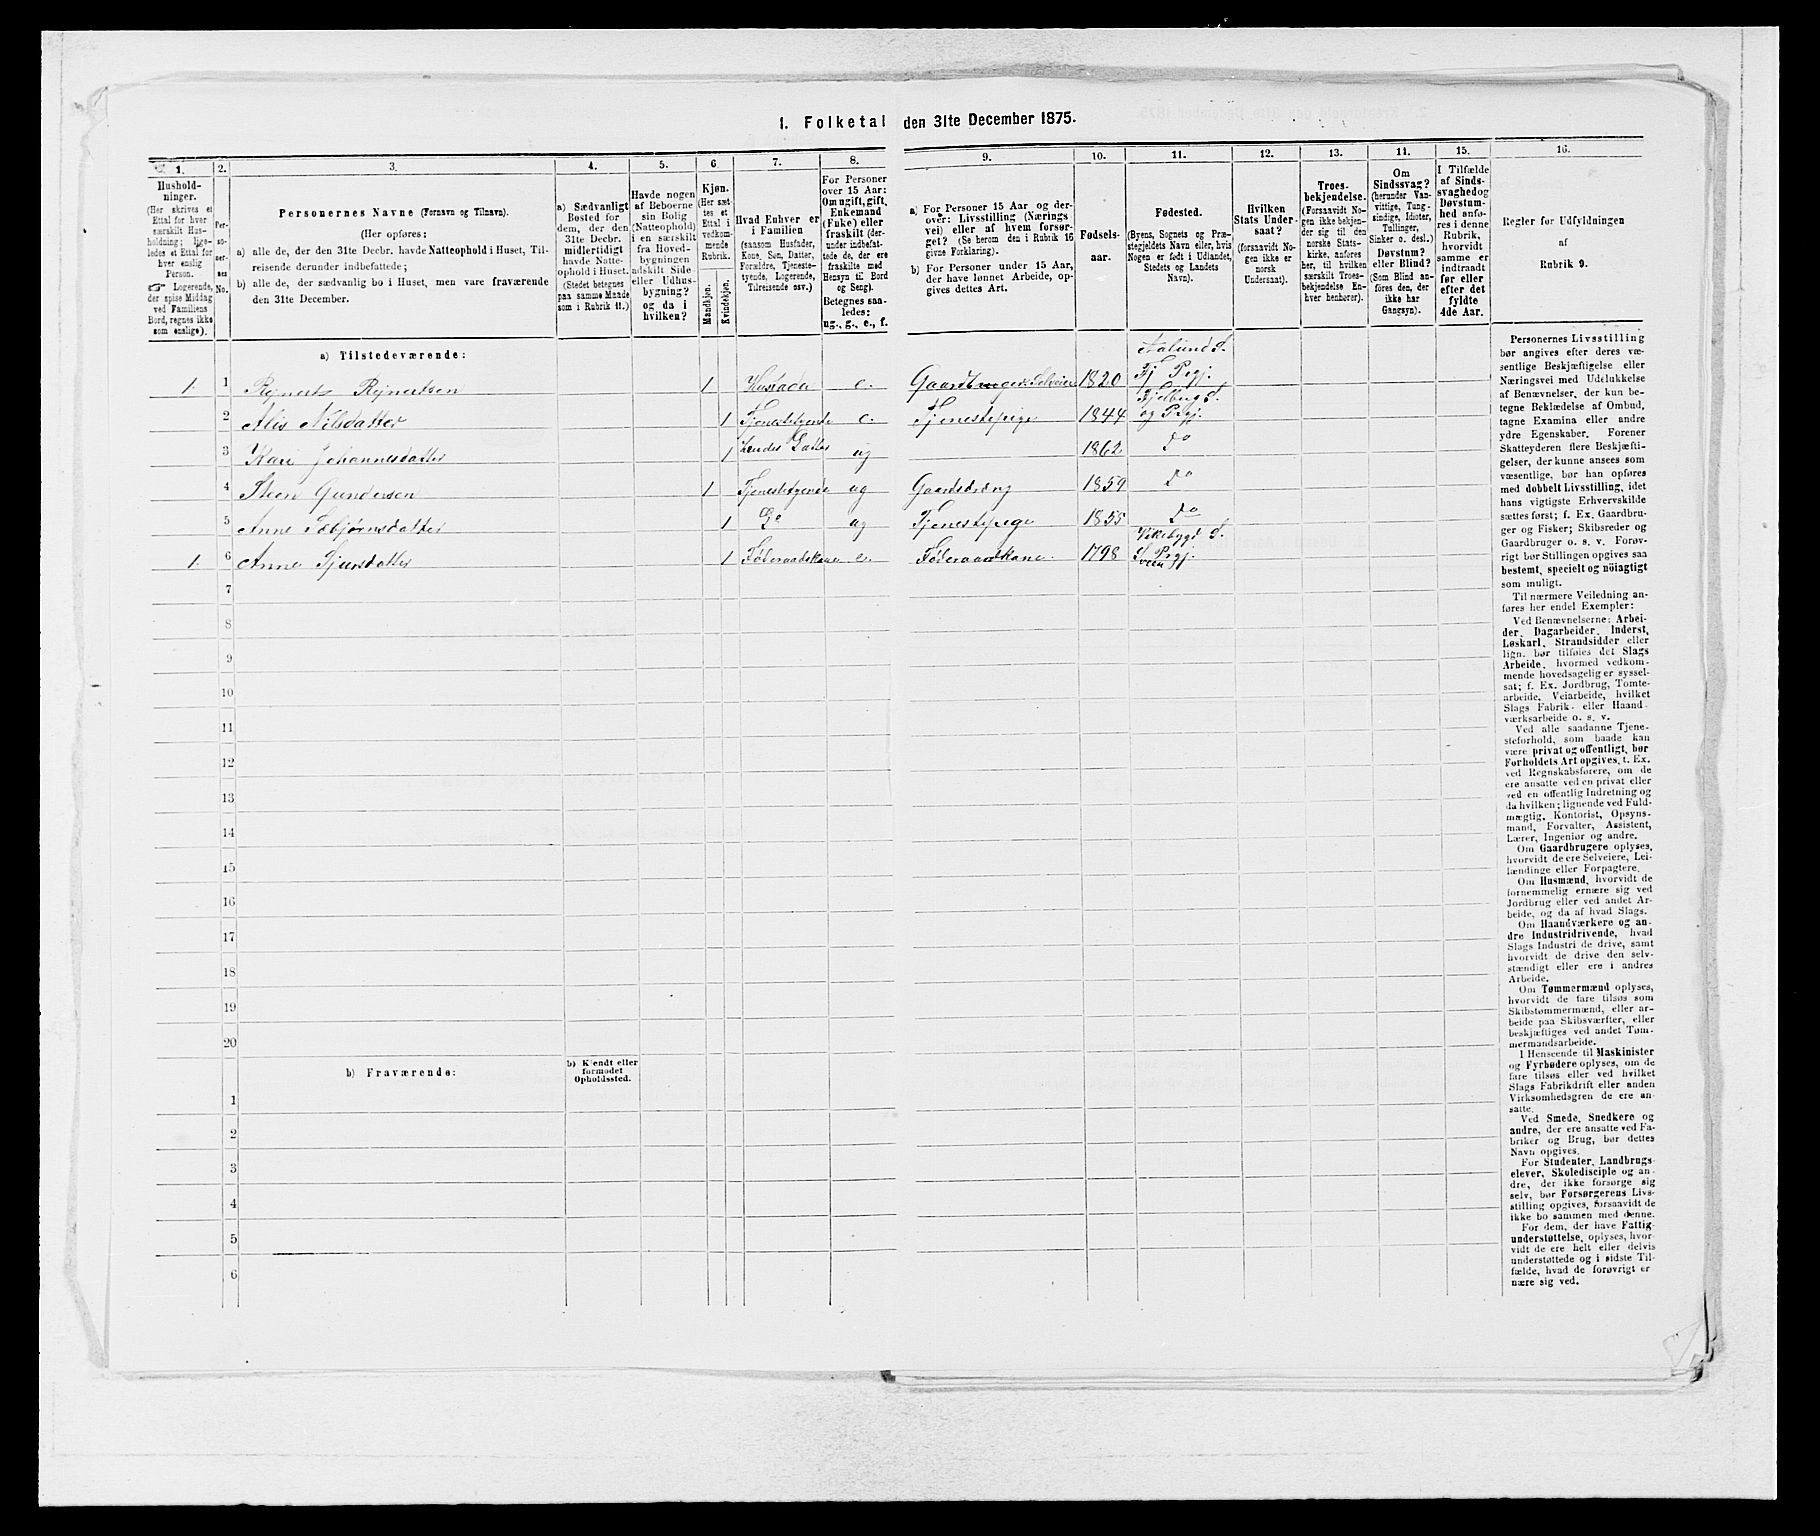 1. Folketal den 31te December 1875.
1.
Hushold-
ninger.
(Her skrives et
Ettal for hver
særskilt Hus-
holdning; lige-
ledes et Ettal for
hver enslig
Person.
☞ Logerende,
der spise Middag
ved Familiens
Bord, regnes ikke
som enslige).
2.
Per-
so-
ner-
nes
No.
3.
Personernes Navne (Fornavn og Tilnavn).
(Her opføres:
a) alle de, der den 31te Decbr. havde Natteophold i Huset, Til-
reisende derunder indbefattede;
b) alle de, der sædvanlig bo i Huset, men vare fraværende
den 31te December.
4.
a) Sædvanligt
Bosted for
dem, der den
31te Decbr.
midlertidigt
havde Natte-
ophold i Huset.
(Stedet betegnes
paa samme Maade
som i Rubrik 11.)
5.
Havde nogen
af Beboerne
sin Bolig
(Natteophold)
i en særskilt
fra Hoved-
bygningen
adskilt Side-
eller Udhus-
bygning?
og da i
hvilken?
6
Kjøn.
(Her sæt-
tes et
Ettal i
vedkom-
mende
Rubrik.
Mandkjøn.
Kvindekjøn.
7.
Hvad Enhver er
i Familien
(saasom Husfader,
Kone, Søn, Datter,
Forældre, Tjeneste-
tyende, Logerende,
Tilreisende osv.)
8.
For Personer
over 15 Aar:
Om ugift, gift,
Enkemand
(Enke) eller
fraskilt (der-
under indbefat-
tede de, der ere
fraskilte med
Hensyn til Bord
og Seng).
Betegnes saa-
ledes:
ug., g., e., f.
9.
a) For Personer 15 Aar og der-
over: Livsstilling (Nærings
vei) eller af hvem forsør-
get? (Se herom den i Rubrik 16
givne Forklaring).
b) For Personer under 15 Aar,
der have lønnet Arbeide, op-
gives dettes Art.
10.
Fødsels-
aar.
11.
Fødested.
(Byens, Sognets og Præ-
stegjeldets Navn eller, hvis
Nogen er født i Udlandet,
Stedets og Landets
Navn).
12.
Hvilken
Stats Under-
saat?
(forsaavidt No-
gen ikke er
norsk
Undersaat).
13.
Troes-
bekjendelse.
(Forsaavidt No-
gen ikke bekjen-
der sig til den
norske Stats-
kirke, anføres
her, til hvilken
særskilt Troes-
bekjendelse En-
hver henhører).
14.
Om
Sindssvag?
(herunder Van-
vittige, Tung
sindige, Idioter,
Tullinger,
Sinker o. desl.)
Døvstum?
eller Blind?
(Som Blind an-
føres den, der
ikke har
Gangsyn).
15.
I Tilfælde
af Sinds-
svaghed og
Døvstum-
hed anfø-
res i denne
Rubrik,
hvorvidt
samme er
indtraadt
før eller
efter det
fyldte
4de Aar.
16.
Regler før Udfyldningen
af
Rubrik 9.
a) Tilstedeværende:
Aalund S.
1. 1 Rejnert Rejnertsen 1 Husfader e. Gaardbruger Selveier 1820 Fj Prgj.
Fjelberg S.
2 Alis Nilsdatter 1 Tjenestetyende e. Tjenestepige 1844 og Prgj.
3 Kari Johannesdatter 1 hendes Datter ug 1862 Do
4 Steen Gundersen 1 Tjenestetyende ug Gaardsdreng 1859 Do
5 Anne Asbjørnsdatter 1 Do ug Tjenestepige 1855 Do
Vikebygd S.
1. 6 Anne Sjursdatter 1 Føderaadskone e. Føderaadkone. 1798 Sveen Prgj.
7
8
9
10
11
12
13
14
15
16
17
18
19
20
b) Fraværende:
b) Kjendt eller
formodet
Opholdssted.
1
2
3
4
5
6
Personernes Livsstilling
bør angives efter deres væ-
sentlige Beskjæftigelse eller
Næringsvei med Udelukkelse
af Benævnelser, der kun be-
tegne Beklædelse af Ombud,
tagne Examina eller andre
ydre Egenskaber. Forener
Skatteyderen flere Beskjæfti-
gelser, der kunne ansees som
væsentlige, bør han opføres
med dobbelt Livsstilling, idet
hans vigtigste Erhvervskilde
sættes først; f. Ex. Gaardbru-
ger og Fisker; Skibsreder og
Gaardbruger o. s. v. Forøv-
rigt bør Stillingen opgives saa
bestemt, specielt og nöiagtigt
som muligt.
Til nærmere Veiledning an-
føres her endel Exempler:
Ved Benævnelserne: Arbei-
der, Dagarbeider, Inderst,
Løskarl, Strandsidder eller
lign. bør tilføies det Slags
Arbeide, hvormed vedkom-
mende hovedsagelig er syssel-
sat; f. Ex. Jordbrug, Tomte-
arbeide, Veiarbeide, hvilket
Slags Fabrik- eller Haand-
værksarbeide o. s. v.
Ved alle saadanne Tjene-
steforhold, som baade kan
være privat og offentligt, bør
Forholdets Art opgives, t. Ex.
ved Regnskabsførere, om de
ere ansatte ved en privat eller
ved en offentlig Indretning og
da hvilken; lignende ved Fuld-
mægtig, Kontorist, Opsyns-
mand, Forvalter, Assistent,
Lærer, Ingeniør og andre.
Om Gaardbrugere oplyses,
hvorvidt de ere Selveiere, Lei-
lændinge eller Forpagtere.
Om Husmænd, hvorvidt de
fornemmelig ernære sig ved
Jordbrug eller ved andet Ar-
beide, og da af hvad Slags.
Om Haandværkere og an-
dre Industridrivende, hvad
Slags Industri de drive, samt
hvorvidt de drive den selv-
stændigt eller ere i andres
Arbeide.
Om Tømmermænd oplyses,
hvorvidt de fare tilsøs som
Skibstømmermænd, eller ar-
beide paa Skibsværfter, eller
beskjæftiges ved andet Tøm-
mermandsarbeide.
I Henseende til Maskinister
og Fyrbødere oplyses, om de
fare tilsøs eller ved hvilket
Slags Fabrikdrift eller anden
Virksomhedsgren de ere an-
satte.
Ved Smede, Snedkere og
andre, der ere ansatte ved Fa-
briker og Brug, bør dettes
Navn opgives.
For Studenter, Landbrugs-
elever, Skoledisciple og an-
dre, der ikke forsørge sig
selv, bør Forsørgerens Livs-
stilling opgives, forsaavidt de
ikke bo sammen med denne.
For dem, der have Fattig-
understøttelse, oplyses, hvor-
vidt de ere helt eller delvis
understøttede og i sidste Til-
fælde, hvad de forøvrigt er
nære sig ved.